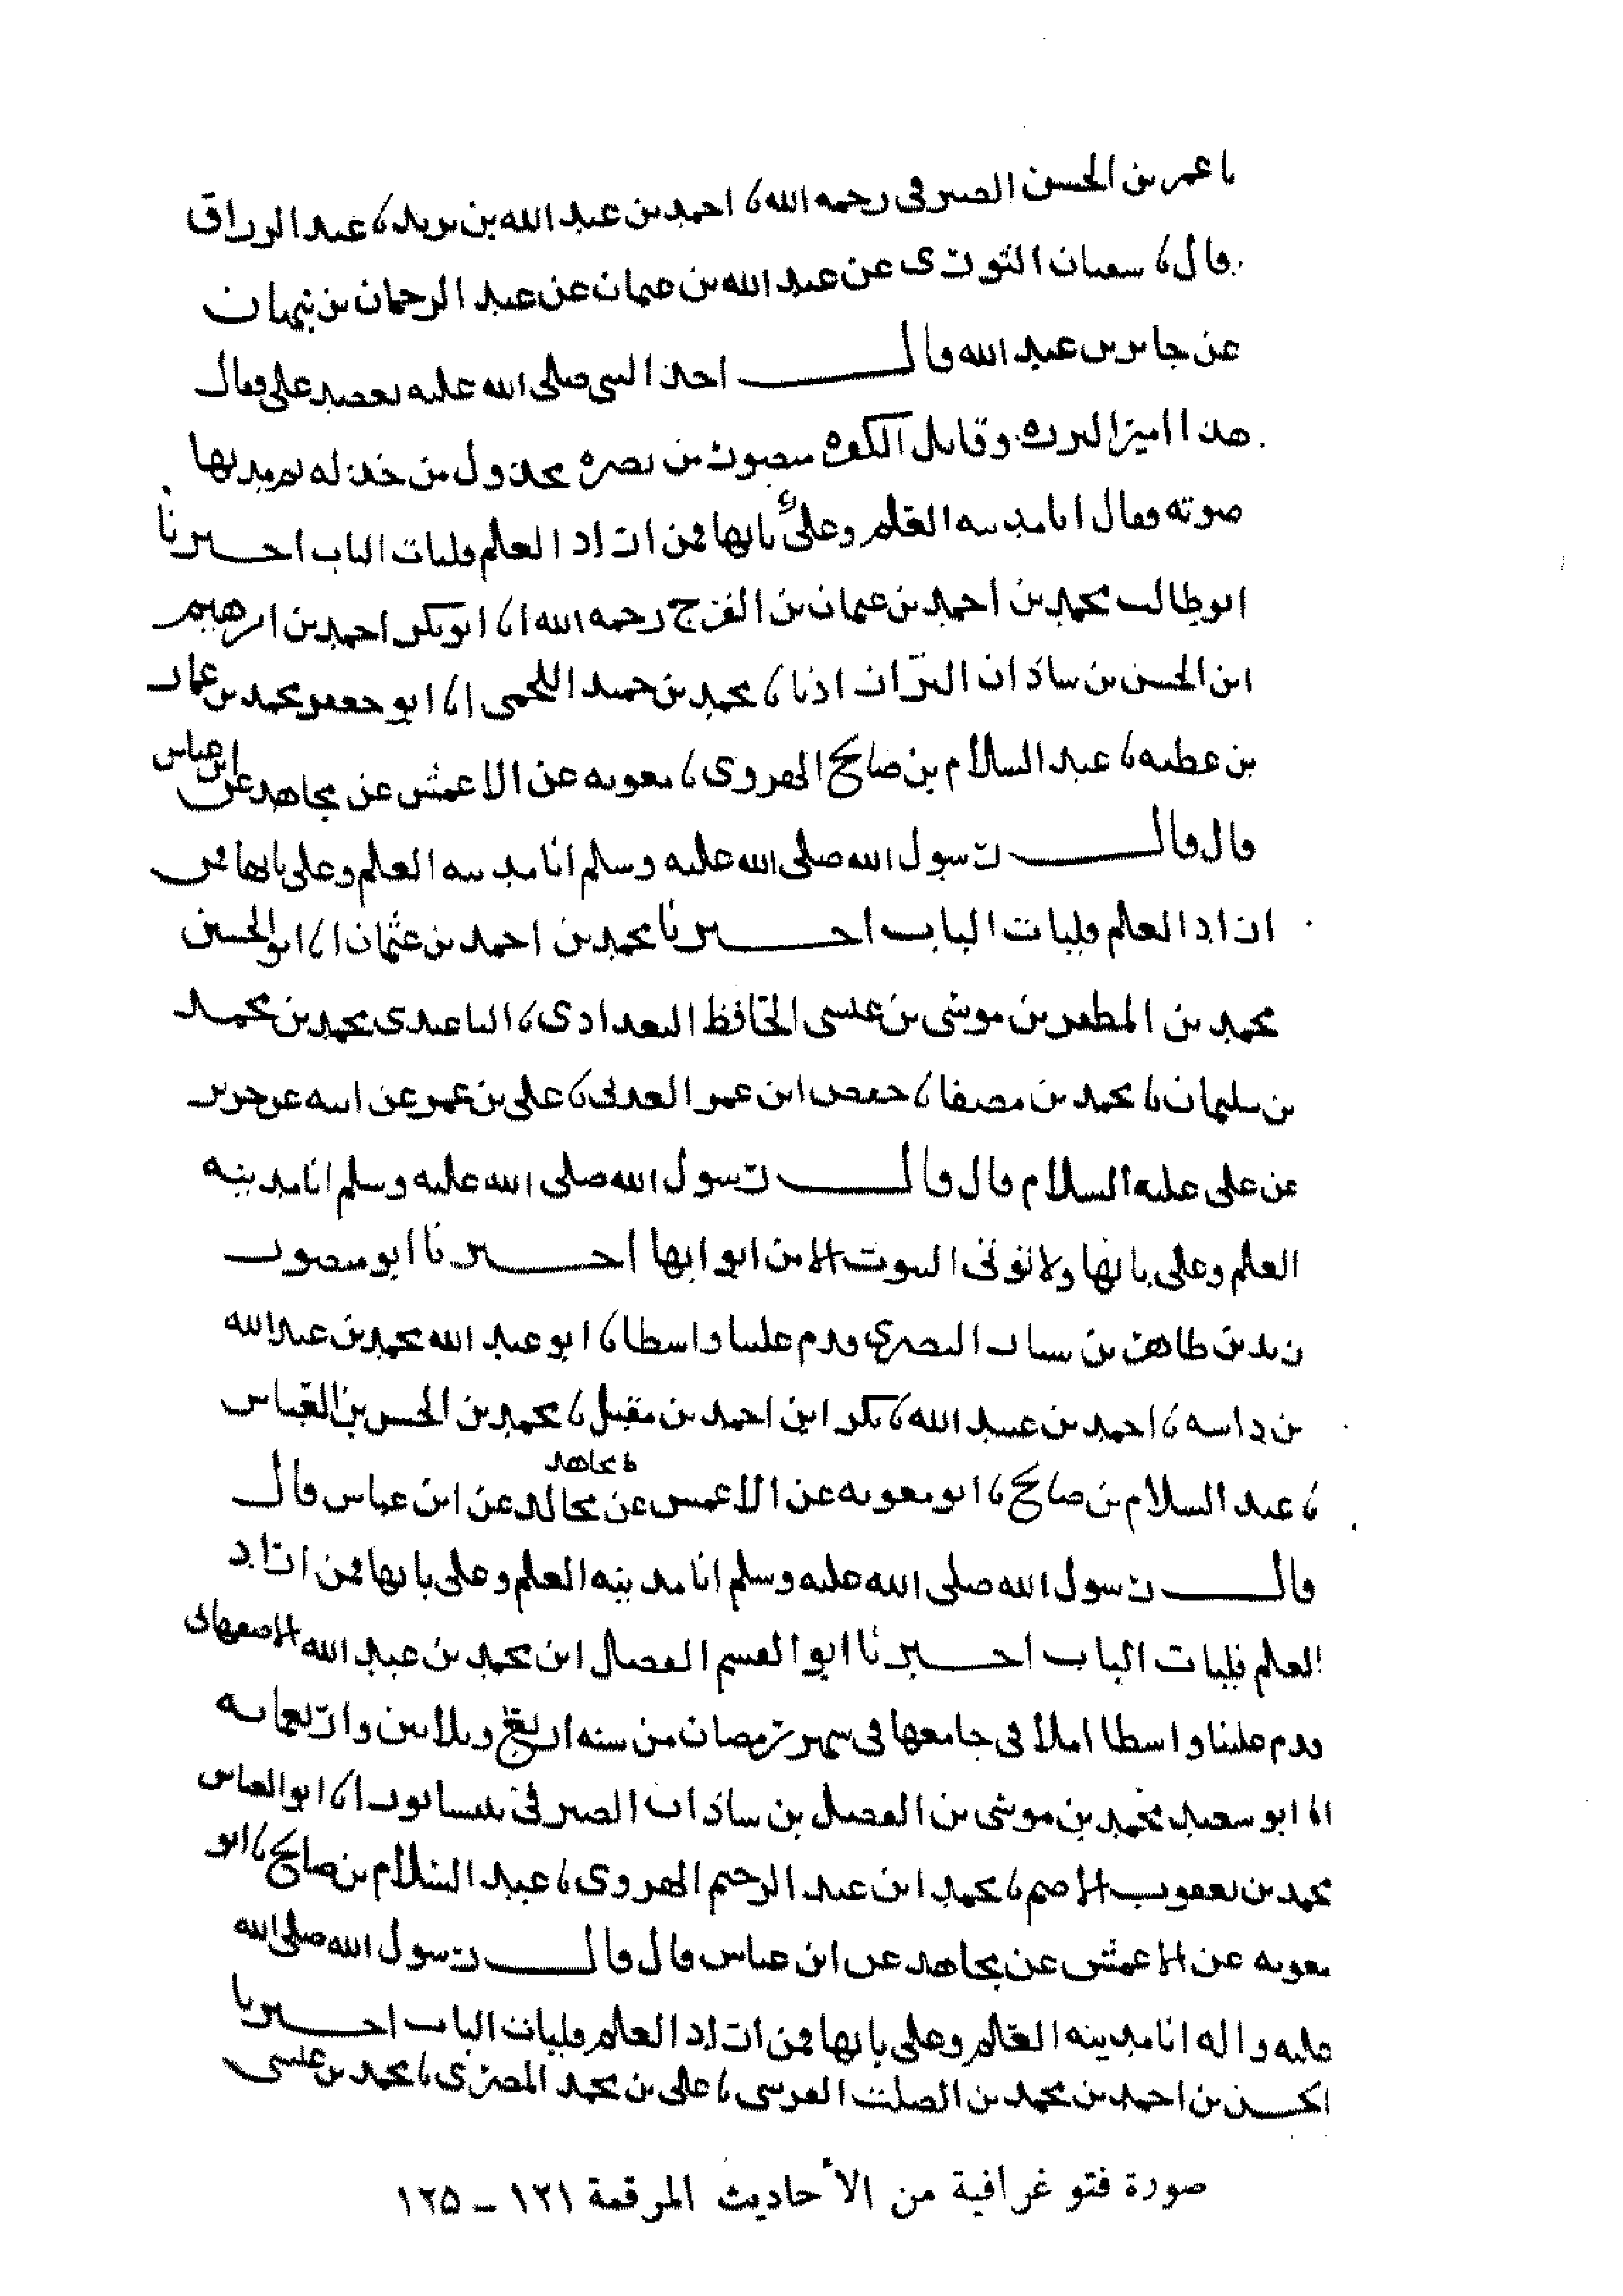 نا عمر بن الحسن الصيرفي رحمه الله نا احمد بن عبد الله بن يزيد نا عبد الرزاق
قال نا سفيان الثوري عن عبد الله بن عثمان عن عبد الرحمان بن بهمان
عن جابر بن عبد الله قال اخذ النبي صلى الله عليه بعضد علي وقال
هذا امير البررة وقاتل الكفرة منصور من نصره مخذول من خذله ثم مد بها
صوته وقال انا مدينه العلم وعلي بابها فمن اراد العلم فليات الباب اخبرنا
ابو طالب محمد بن احمد بن عثمان بن الفرج رحمه الله انا ابو بكر احمد بن ابرهيم
ابن الحسن بن شاذان البزاز اذنا نا محمد بن حميد اللخمي انا ابو جعفر محمد بن عمار
بن عطيه نا عبد السلام بن صالح الهروي نا معويه عن الاعمش عن مجاهد عن ابن عباس
قال قال رسول الله صلى الله عليه وسلم انا مدينه العلم وعلي بابها فمن
اراد العلم فليات الباب اخبرنا محمد بن احمد بن عثمان انا ابو الحسين
محمد بن المظفر بن موسى بن عيسى الحافظ البغدادي نا الباغندي محمد بن محمد
بن سليمان نا محمد بن مصفا نا حفص ابن عمر العدني نا علي بن عمر عن ابيه عن جرير
عن علي عليه السلام قال قال رسول الله صلى الله عليه وسلم انا مدينه
العلم وعلي بابها ولا تؤتى البيوت الا من ابوابها اخبرنا ابو منصور
زيد بن طاهر بن سيار البصري قدم علينا واسطا نا ابو عبد الله محمد بن عبد الله
بن داسه نا احمد بن عبيد الله نا بكر ابن احمد بن مقبل نا محمد بن الحسن بن العباس
نا عبد السلام بن صالح نا ابو معويه عن الاعمش عن مجالد مجاهد عن ابن عباس قال
قال رسول الله صلى الله عليه وسلم انا مدينه العلم وعلي بابها فمن اراد
العلم فليات الباب اخبرنا ابو القسم الفضل ابن محمد بن عبد الله الاصفهاني
قدم علينا واسطا املا في جامعها في شهر رمضان من سنه اربع وثلاثين واربعمايه
انا ابو سعيد محمد بن موسى بن الفضل بن شاذان الصيرفي بنيسابور انا ابو العباس
محمد بن يعقوب الاصم نا محمد ابن عبد الرحيم الهروي نا عبد السلام بن صالح نا ابو
معويه عن الاعمش عن مجاهد عن ابن عباس قال قال رسول الله صلى الله
عليه واله انا مدينه العلم وعلي بابها فمن اراد العلم فليات الباب اخبرنا
الحسن بن احمد بن محمد بن الصلت القرسي نا علي بن محمد المصري نا محمد بن عيسى
صورة فتو غرافية من الأحاديث المرقمة ١٢١ – ١٢٥